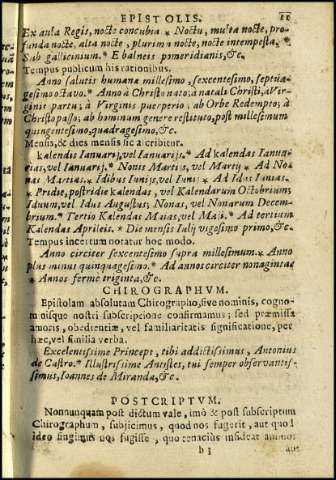 EPISTOLIS. 11
Ex aula Regis, nocte concubia * Noctu, multa nocte, pro-
funda nocte, alta nocte, plurima nocte, nocte intempesta. *
Sub gallicinium. * E balneis pomeridianis, &c.
Tempus publicum his rationibus.
Anno salutis humanæ millesimo, sexcentesimo, septua-
gesimo octavo. * Anno à Christo nato; à natali Christi, à Vir-
ginis partu; à Virginis puerperio; ab Orbe Redempto; à
Christo passo; ab hominum genere restituto, post millesimum
quingentesimo, quadragesimo, &c.
Mensis, & dies mensis sic adscribitur.
kalendis Ianuarij, vel Ianuarijs. * Ad kalendas Ianuar-
ias, vel Ianuarij. * Nonis Martis, vel Martij * Ad No-
nas Martias. * Idibus Iunijs, vel Iunij. * Ad Idus Iunias.
* Pridie, postridie kalendas, vel Kalendarum Octobrium,
Iduum, vel Idus Augustus; Nonas, vel Nonarum Decem-
brium. * Tertio Kalendas Maias, vel Maji. * Ad tertium
Kalendas Aprileis. * Die mensis Iulij vigesimo primo, &c.
Tempus incertum notatur hoc modo.
Anno circiter sexcentesimo supra millesimum. * Anno
plus minus quinquagesimo. * Ad annos circiter nonagintas
* Annos ferme triginta, &c.
CHIROGRAPHVM.
Epistolam absolutam Chirographo, sive nominis, cogno-
minisque nostri subscripcione confirmamus; sed præmissa
amoris, obedientiæ, vel familiaritatis significatione, per
hæc, vel similia verba.
Excelentissime Princeps, tibi addictissimus, Antonius
de Castro. * Illustrissime Antistes, tui semper observantis-
simus, Ioannes de Miranda, &c.
POSTCRIPTVM.
Nonnunquam post dictum vale, imò & post subscriptum
Chirographum, subjicimus, quod nos fugerit, aut quod
ideo fingimus nos fugisse, quo tenacius insideat animos
b 3 aut